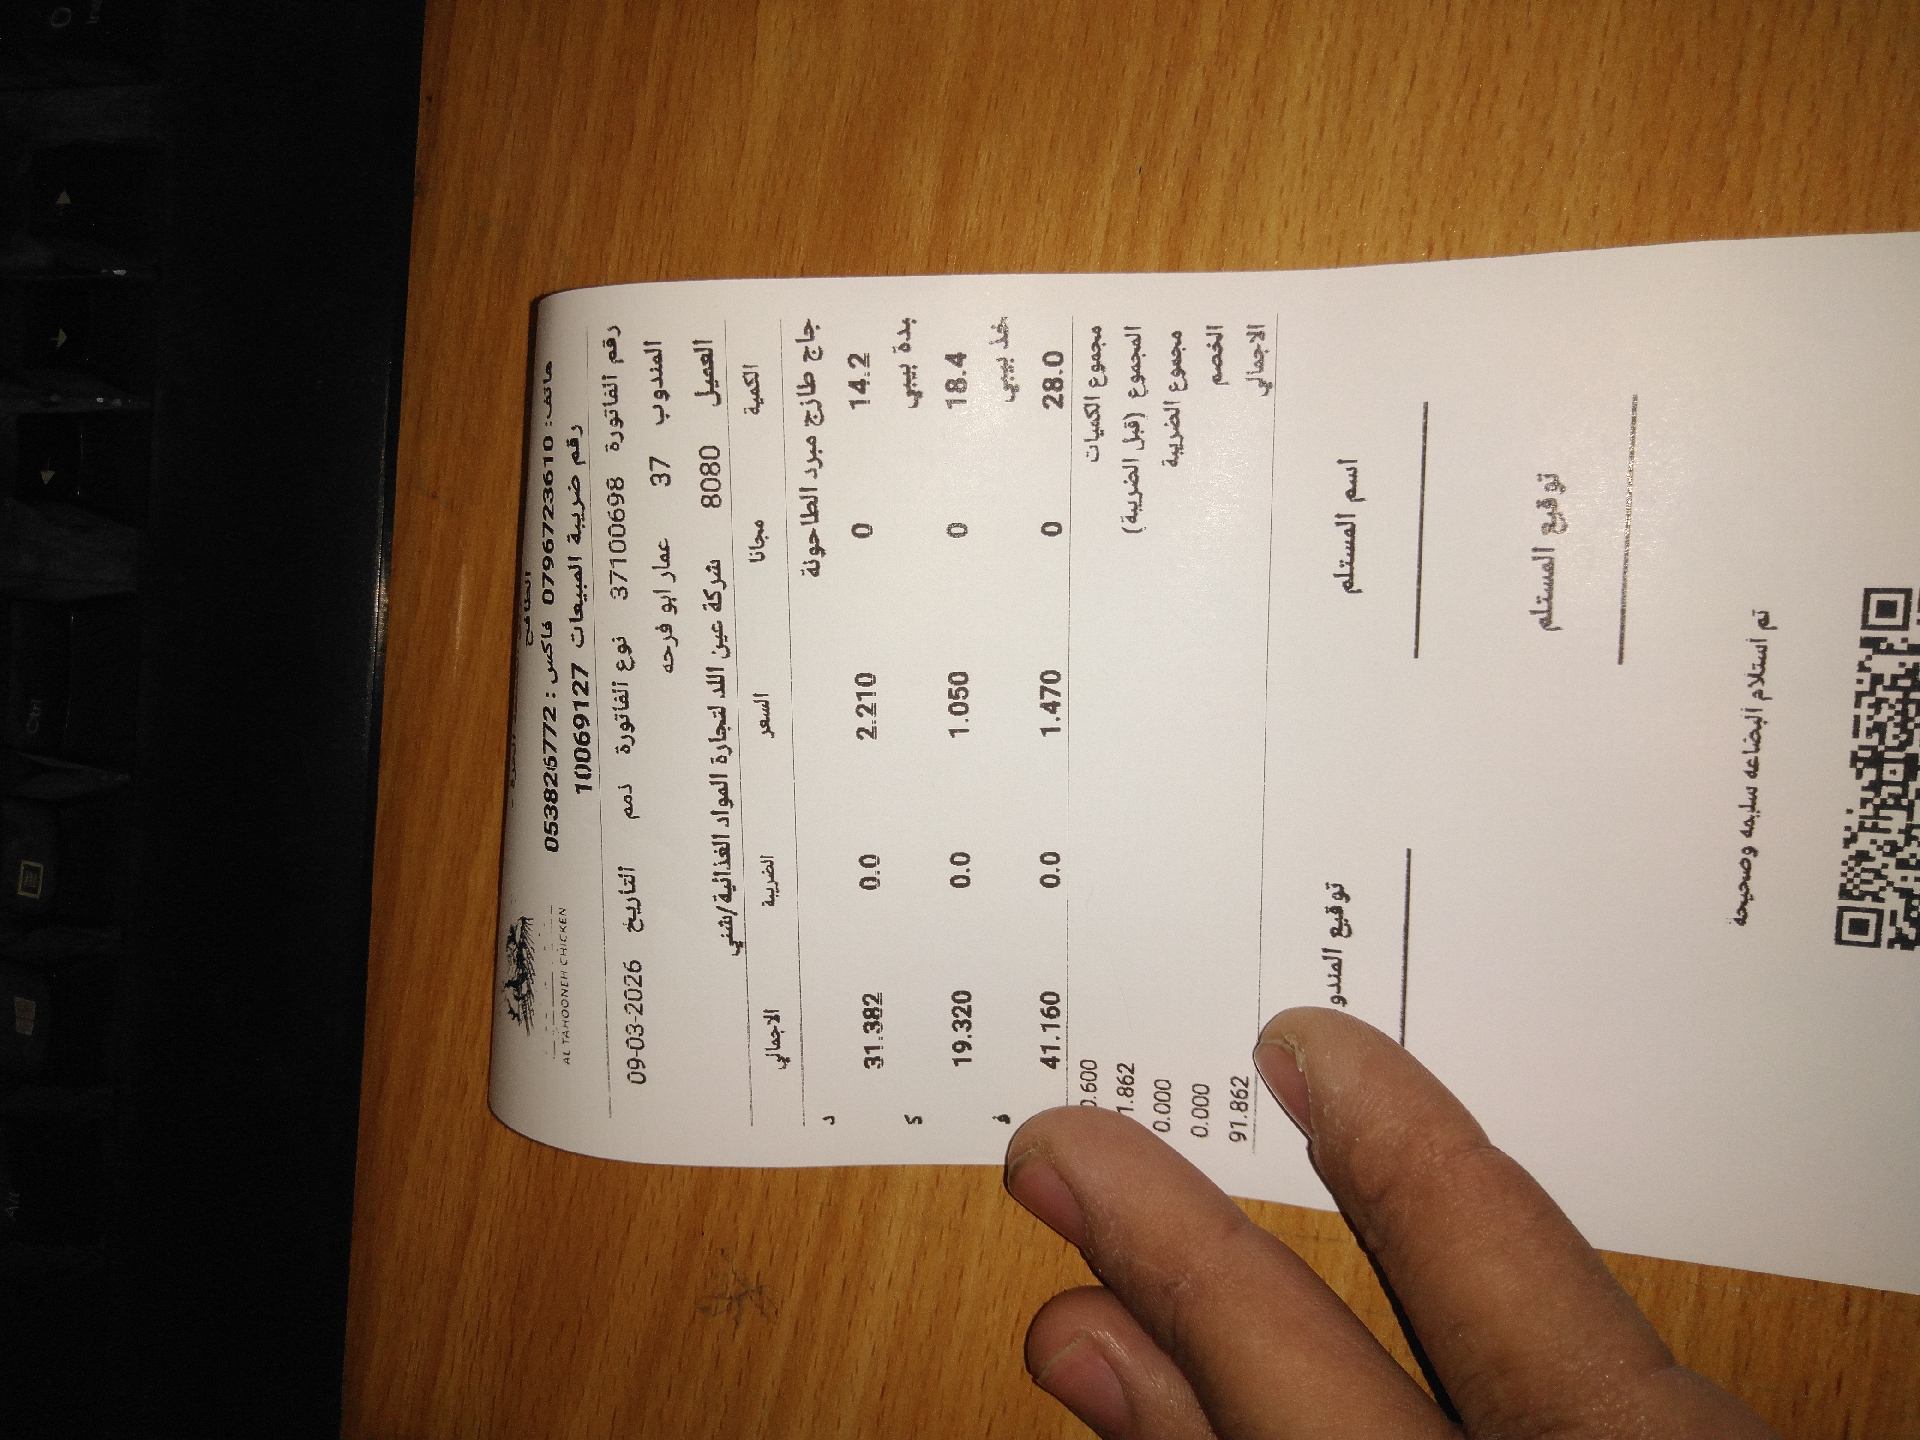 AL TAHOONEH CHICKEN
هاتف: 0796723610 فاكس: 053826772
رقم ضريبة المبيعات 10069127
رقم الفاتورة 37100698 نوع الفاتورة ذمم التاريخ 09-03-2026
المندوب 37 عمار ابو فرحه
العميل 8080 شركة عين اللد لتجارة المواد الغذائية/شني
الكمية مجانا السعر الضريبة الاجمالي
جاج طازج مبرد الطاحونة د
14.2 0 2.210 0.0 31.382
بدة بيبي ك
18.4 0 1.050 0.0 19.320
خذ بيبي ف
28.0 0 1.470 0.0 41.160
مجموع الكميات 0.600
المجموع (قبل الضريبة) 1.862
مجموع الضريبة 0.000
الخصم 0.000
الاجمالي 91.862
اسم المستلم توقيع المندو
توقيع المستلم
تم أستلام البضاعه سليمه وصحيحة
Ctrl
Alt